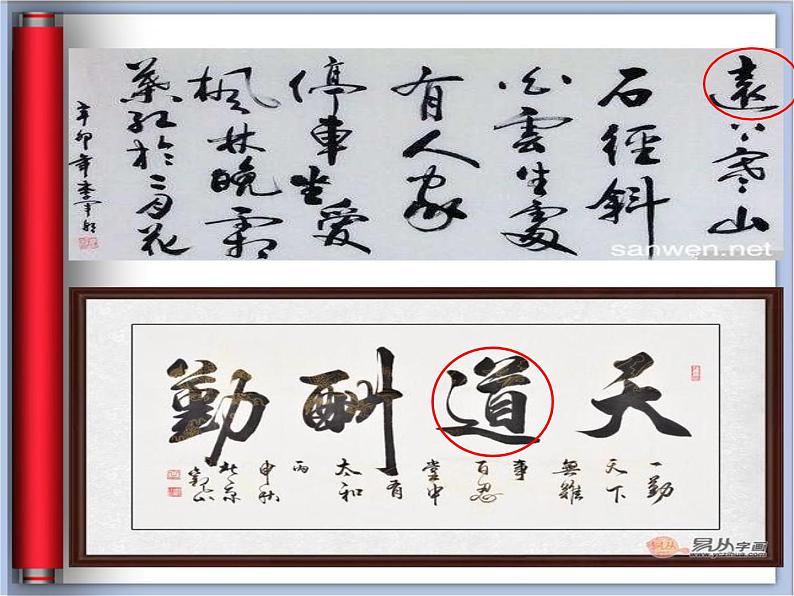 遠上寒山
石徑斜
白雲生處
有人家
停車坐愛
楓林晚霜
葉紅於二月花
辛卯年
sanwen.net
天道酬勤
一勤
天下
無難
事
百忍
堂中
有
太和
丙
申秋
易从字画
www.yczihua.com